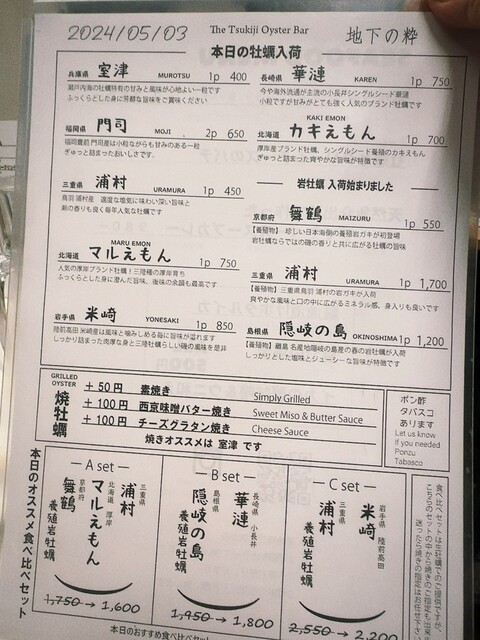 2024/05/03
The Tsukiji Oyster Bar
地下の粋
本日の牡蠣入荷
兵庫県 室津 MUROTSU 1p 400
瀬戸内海の牡蠣特有の甘みと風味が心地よい一粒です
ふっくらとした身に芳醇な旨味をご賞味ください
福岡県 門司 MOJI 2p 650
福岡豊前 門司産は小粒ながらも甘みのある一粒
ぎゅっと詰まったおいしさです。
三重県 浦村 URAMURA 1p 450
鳥羽 浦村産 適度な塩気に味わい深い旨味と
潮の香りも良く毎年人気な牡蠣です
MARU EMON
北海道 マルえもん 1p 750
人気の厚岸ブランド牡蠣!三陸種の厚岸育ち
ふっくらとした身に澄んだ旨味、後味の余韻も最高です
岩手県 米崎 YONESAKI 1p 850
陸前高田 米崎産は風味と噛みしめる毎に旨味が溢れます
しっかり詰まった肉厚な身と三陸牡蠣らしい磯の風味を是非
長崎県 華漣 KAREN 1p 750
今や海外流通が主流の小長井シングルシード華漣
小粒ですが甘みがとても強く人気のブランド牡蠣です
KAKI EMON
北海道 カキえもん 1p 700
厚岸産ブランド牡蠣、シングルシード養殖のカキえもん
ぎゅっと詰まった爽やかな旨味が特徴です
岩牡蠣 入荷始まりました
京都府 舞鶴 MAIZURU 1p 550
【養殖物】 珍しい日本海側の養殖岩ガキが初登場
岩牡蠣ならではの磯の香りと共に広がる牡蠣の旨味
三重県 浦村 URAMURA 1p 1,700
【養殖物】三重県鳥羽 浦村の岩ガキが入荷
爽やかな風味と口の中に広がるミネラル感、身入りも良いです
島根県 隠岐の島 OKINOSHIMA 1p 1,200
【養殖物】離島 名産地隠岐の島産の春の岩牡蠣が入荷
しっかりとした塩味とジューシーな旨味が特徴です
GRILLED OYSTER
焼牡蠣
+ 50円 素焼き Simply Grilled
+ 100円 西京味噌バター焼き Sweet Miso & Butter Sauce
+ 100円 チーズグラタン焼き Cheese Sauce
焼きオススメは 室津 です
ポン酢
タバスコ
あります
Let us know
If you needed
Ponzu
Tabasco
本日のオススメ食べ比べセット
A set
三重県 浦村
北海道 厚岸 マルえもん
京都府 舞鶴 養殖岩牡蠣
1,750 → 1,600
B set
長崎県 小長井 華漣
島根県 隠岐の島 養殖岩牡蠣
1,950 → 1,800
C set
岩手県 陸前高田 米崎
三重県 浦村 養殖岩牡蠣
2,550 → 2,200
食べ比べセットは生牡蠣でのご提供ですが、
こちらのセットの中から焼きのご指定も出来
迷ったら焼きの指定はお任せ下さい
本日のおすすめ食べ比べセット